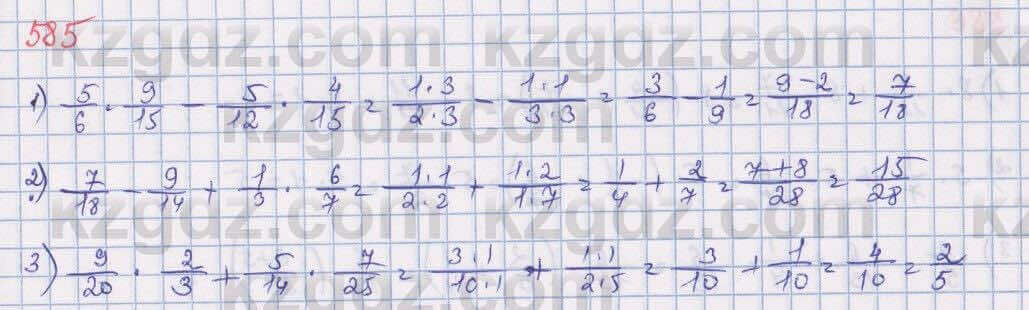 585
1) 5/6 · 9/15 - 5/12 · 4/15 = 1·3/2·3 - 1·1/3·3 = 3/6 - 1/9 = 9-2/18 = 7/18
2) 7/18 - 9/14 + 1/3 · 6/7 = 1·1/2·2 + 1·2/1·7 = 1/4 + 2/7 = 7+8/28 = 15/28
3) 9/20 · 2/3 + 5/14 · 7/25 = 3·1/10·1 + 1·1/2·5 = 3/10 + 1/10 = 4/10 = 2/5
kzgdz.com
kzgdz.com
kzgdz.com